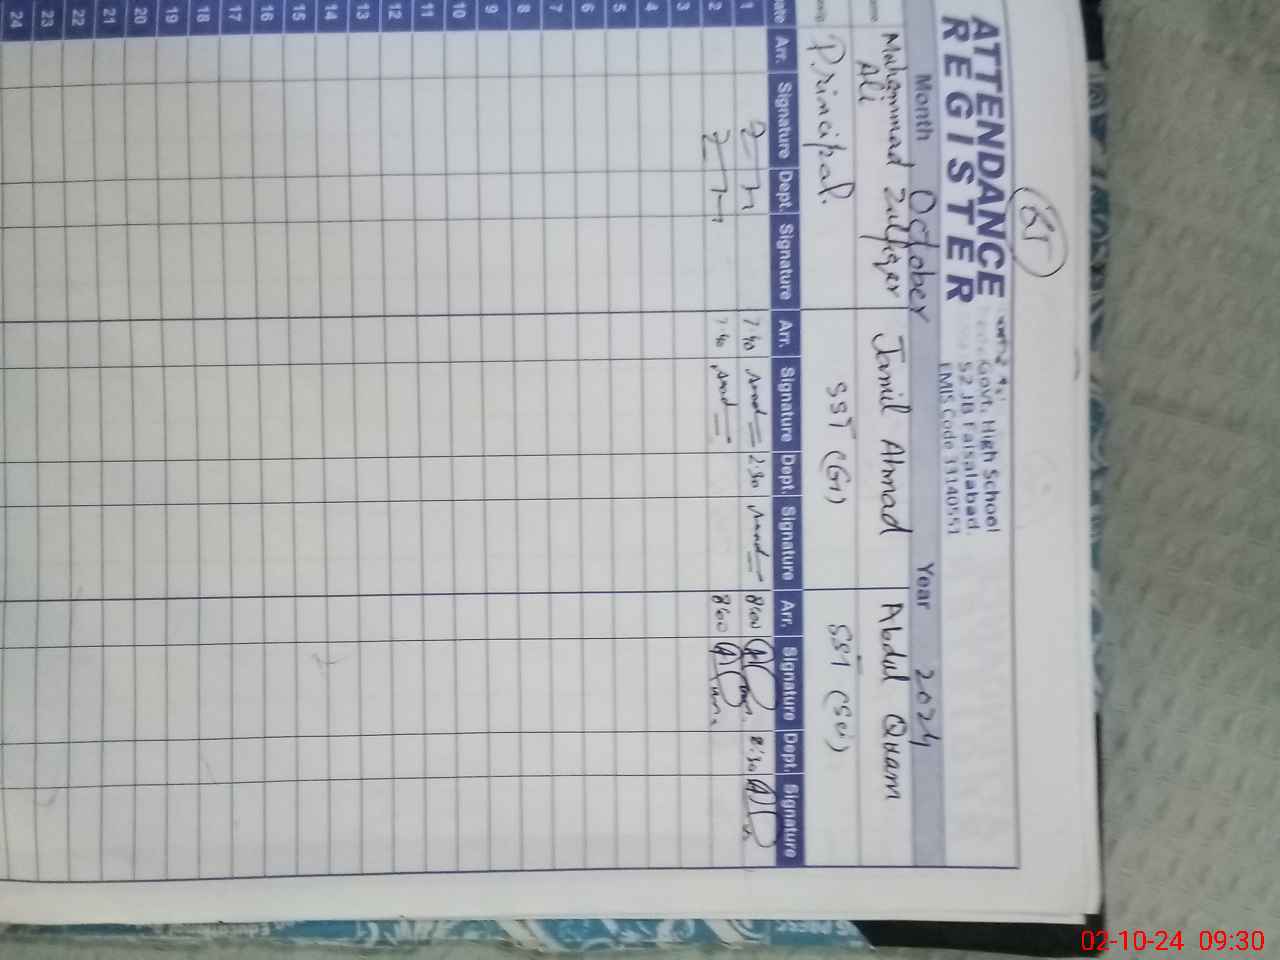 ATTENDANCE
REGISTER
Govt. High School
52 JB Faisalabad.
EMIS Code 33140551
Month October Year 2024
Muhammad Zulfiqar
Ali
Jamil Ahmad
Abdul Quam
Principal.
SST (G)
SST (Sci)
Arr. Signature Dept. Signature Arr. Signature Dept. Signature Arr. Signature Dept. Signature
1 7:40 2:30 8:00
2 7:40 8:00
3
4
5
6
7
8
9
10
11
12
13
14
15
16
17
18
19
20
21
22
23
24
02-10-24 09:30